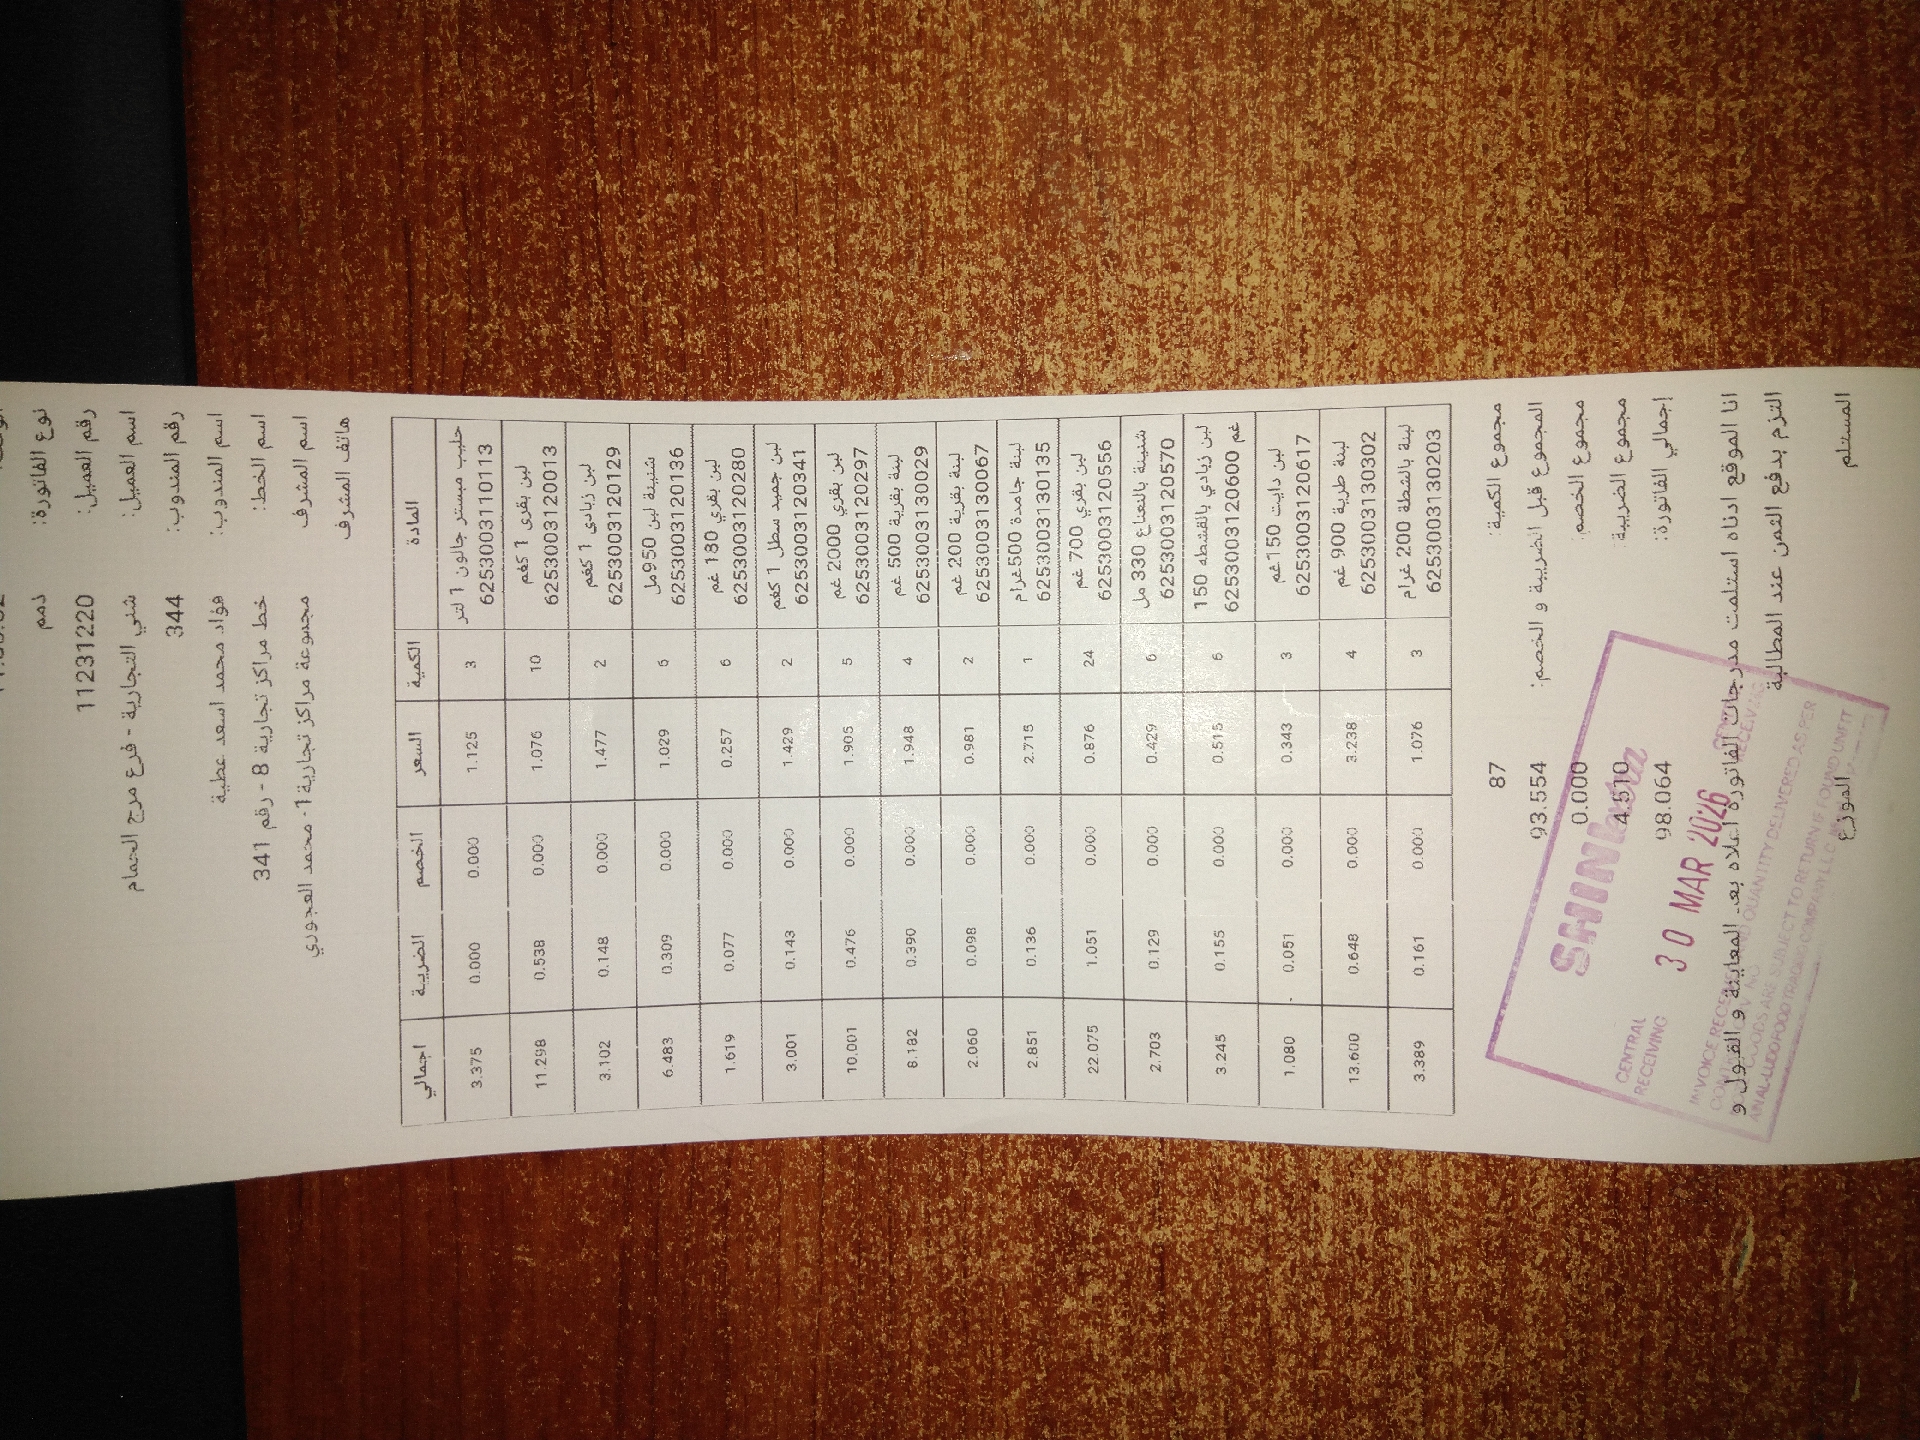 نوع الفاتورة: ذمم
رقم العميل: 11231220
اسم العميل: شني التجارية - فرع مرج الحمام
رقم المندوب: 344
اسم المندوب: فؤاد محمد اسعد عطية
اسم الخط: خط مراكز تجارية 8 - رقم 341
اسم المشرف مجموعة مراكز تجارية 1- محمد العجوري
هاتف المشرف
المادة الكمية السعر الخصم الضريبة اجمالي
حليب مبستر جالون 1 لتر 6253003110113 3 1.125 0.000 0.000 3.375
لبن بقري 1 كغم 6253003120013 10 1.076 0.000 0.538 11.298
لبن زبادي 1 كغم 6253003120129 2 1.477 0.000 0.148 3.102
شنينة لبن 950مل 6253003120136 6 1.029 0.000 0.309 6.483
لبن بقري 180 غم 6253003120280 6 0.257 0.000 0.077 1.619
لبن جميد سطل 1 كغم 6253003120341 2 1.429 0.000 0.143 3.001
لبن بقري 2000 غم 6253003120297 5 1.905 0.000 0.476 10.001
لبنة بقرية 500 غم 6253003130029 4 1.948 0.000 0.390 8.182
لبنة بقرية 200 غم 6253003130067 2 0.981 0.000 0.098 2.060
لبنة جامدة 500غرام 6253003130135 1 2.715 0.000 0.136 2.851
لبن بقري 700 غم 6253003120556 24 0.876 0.000 1.051 22.075
شنينة بالنعناع 330 مل 6253003120570 6 0.429 0.000 0.129 2.703
لبن زبادي بالقشطه 150 غم 6253003120600 6 0.515 0.000 0.155 3.245
لبن دايت 150غم 6253003120617 3 0.343 0.000 0.051 1.080
لبنة طرية 900 غم 6253003130302 4 3.238 0.000 0.648 13.600
لبنة بالشطة 200 غرام 6253003130203 3 1.076 0.000 0.161 3.389
مجموع الكمية: 87
المجموع قبل الضريبة و الخصم: 93.554
مجموع الخصم: 0.000
مجموع الضريبة: 4.510
إجمالي الفاتورة: 98.064
انا الموقع ادناه استلمت مدرجات الفاتورة اعلاه بعد المعاينة و القبول و
التزم بدفع الثمن عند المطالبة
المستلم الموزع
CENTRAL
RECEIVING
30 MAR 2026
QUANTITY DELIVERED AS PER
GOODS ARE SUBJECT TO RETURN IF FOUND UNFIT